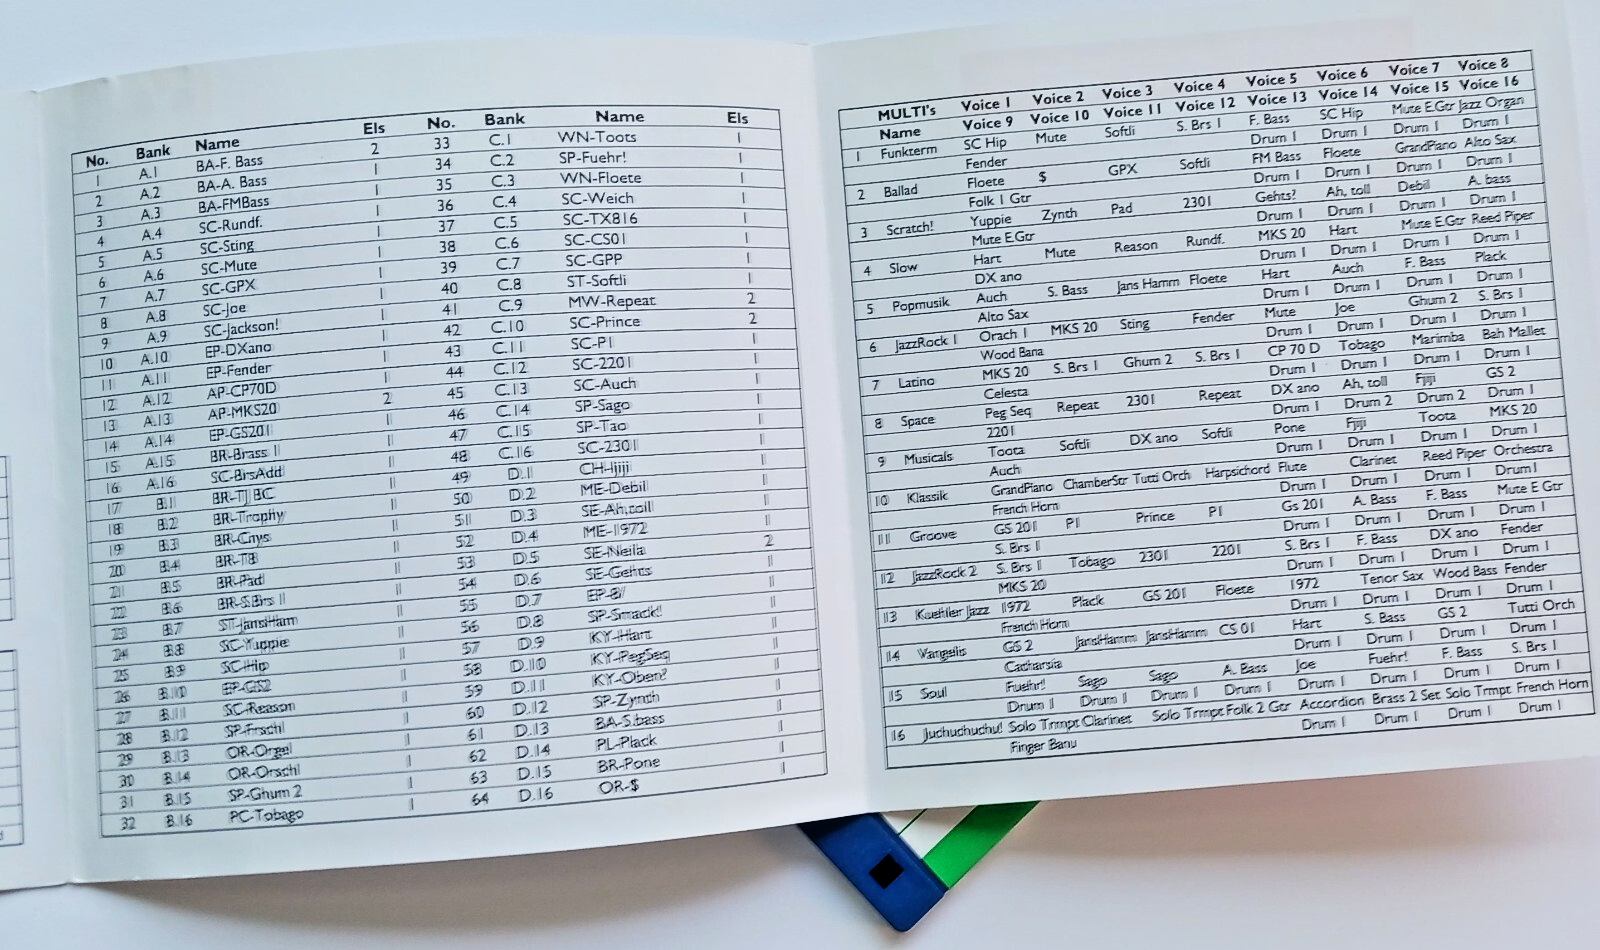 No. Bank Name Els No. Bank Name Els
1 A.1 BA-F. Bass 2 33 C.1 WN-Toots 1
2 A.2 BA-A. Bass 1 34 C.2 SP-Fuehr! 1
3 A.3 BA-FMBass 1 35 C.3 WN-Floete 1
4 A.4 SC-Rundf. 1 36 C.4 SC-Weich 1
5 A.5 SC-Sting 1 37 C.5 SC-TX816 1
6 A.6 SC-Mute 1 38 C.6 SC-CS01 1
7 A.7 SC-GPX 1 39 C.7 SC-GPP 1
8 A.8 SC-Joe 1 40 C.8 ST-Softli 1
9 A.9 SC-Jackson! 1 41 C.9 MW-Repeat 2
10 A.10 EP-DXano 1 42 C.10 SC-Prince 2
11 A.11 EP-Fender 1 43 C.11 SC-P1 1
12 A.12 AP-CP70D 1 44 C.12 SC-2201 1
13 A.13 AP-MKS20 2 45 C.13 SC-Auch 1
14 A.14 EP-GS201 1 46 C.14 SP-Sago 1
15 A.15 BR-Brass 1 1 47 C.15 SP-Tao 1
16 A.16 SC-BrsAdd 1 48 C.16 SC-2301 1
17 B.1 BR-TJ BC 1 49 D.1 CH-Ijiji 1
18 B.2 BR-Trophy 1 50 D.2 ME-Debil 1
19 B.3 BR-Cnys 1 51 D.3 SE-Ah,toll 1
20 B.4 BR-T8 1 52 D.4 ME-1972 1
21 B.5 BR-Pad 1 53 D.5 SE-Neila 2
22 B.6 BR-S.Brs 1 1 54 D.6 SE-Gehts 1
23 B.7 ST-JansHam 1 55 D.7 1
24 B.8 SC-Yuppie 1 56 D.8 SP-Smack! 1
25 B.9 SC-Hip 1 57 D.9 KY-Hart 1
26 B.10 EP-GS2 1 58 D.10 KY-PegSeq 1
27 B.11 SC-Reason 1 59 D.11 KY-Oben? 1
28 B.12 1 60 D.12 SP-Zynth 1
29 B.13 OR-Orgel 1 61 D.13 BA-S.bass 1
30 B.14 OR-Orschl 1 62 D.14 PL-Plack 1
31 B.15 SP-Ghum 2 1 63 D.15 BR-Pone 1
32 B.16 PC-Tobago 1 64 D.16 OR-$ 1
MULTI's Voice 1 Voice 2 Voice 3 Voice 4 Voice 5 Voice 6 Voice 7 Voice 8
Name Voice 9 Voice 10 Voice 11 Voice 12 Voice 13 Voice 14 Voice 15 Voice 16
1 Funkterm SC Hip Mute Softli S. Brs 1 F. Bass SC Hip Mute E.Gtr Jazz Organ
Fender Drum 1 Drum 1 Drum 1 Drum 1
2 Ballad Floete $ GPX Softli FM Bass Floete GrandPiano Alto Sax
Folk 1 Gtr Drum 1 Drum 1 Drum 1 Drum 1
3 Scratch! Yuppie Zynth Pad 2301 Gehts? Ah, toll Debil A. bass
Mute E.Gtr Drum 1 Drum 1 Drum 1 Drum 1
4 Slow Hart Mute Reason Rundf. MKS 20 Hart Mute E.Gtr Reed Piper
DX ano Drum 1 Drum 1 Drum 1 Drum 1
5 Popmusik Auch S. Bass Jans Hamm Floete Hart Auch F. Bass Plack
Alto Sax Drum 1 Drum 1 Drum 1 Drum 1
6 JazzRock 1 Orach 1 MKS 20 Sting Fender Mute Joe Ghum 2 S. Brs 1
Wood Bana Drum 1 Drum 1 Drum 1 Drum 1
7 Latino MKS 20 S. Brs 1 Ghum 2 S. Brs 1 CP 70 D Tobago Marimba Bah Mallet
Celesta Drum 1 Drum 1 Drum 1 Drum 1
8 Space Peg Seq Repeat 2301 Repeat DX ano Ah, toll Fjiji GS 2
2201 Drum 1 Drum 2 Drum 2 Drum 1
9 Musicals Toota Softli DX ano Softli Pone Fjiji Toota MKS 20
Auch Drum 1 Drum 1 Drum 1 Drum 1
10 Klassik GrandPiano ChamberStr Tutti Orch Harpsichord Flute Clarinet Reed Piper Orchestra
French Horn Drum 1 Drum 1 Drum 1 Drum1
11 Groove GS 201 P1 Prince P1 Gs 201 A. Bass F. Bass Mute E Gtr
S. Brs 1 Drum 1 Drum 1 Drum 1 Drum 1
12 JazzRock 2 S. Brs 1 Tobago 2301 2201 S. Brs 1 F. Bass DX ano Fender
MKS 20 Drum 1 Drum 1 Drum 1 Drum 1
13 Kuehler Jazz 1972 Plack GS 201 Floete 1972 Tenor Sax Wood Bass Fender
French Horn Drum 1 Drum 1 Drum 1 Drum 1
14 Vangelis GS 2 JansHamm JansHamm CS 01 Hart S. Bass GS 2 Tutti Orch
Catharsia Drum 1 Drum 1 Drum 1 Drum 1
15 Soul Fuehr! Sago Sago A. Bass Joe Fuehr! F. Bass S. Brs 1
Drum 1 Drum 1 Drum 1 Drum 1 Drum 1 Drum 1 Drum 1 Drum 1
16 Juchuchuchu! Solo Trmpt Clarinet Solo Trmpt Folk 2 Gtr Accordion Brass 2 Set Solo Trmpt French Horn
Finger Banu Drum 1 Drum 1 Drum 1 Drum 1